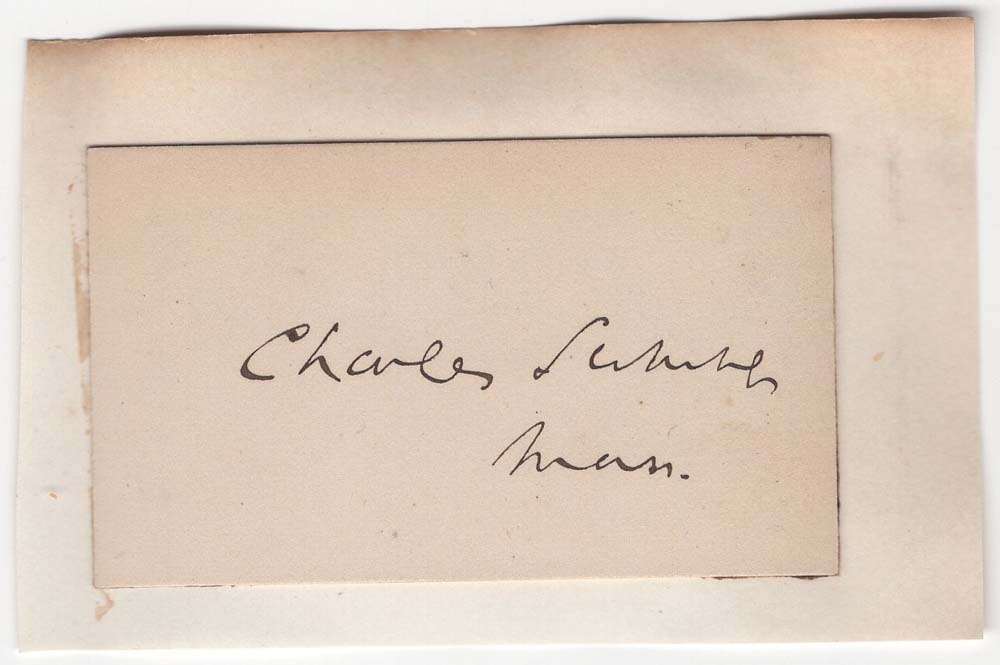 Charles Sumner
Mass.